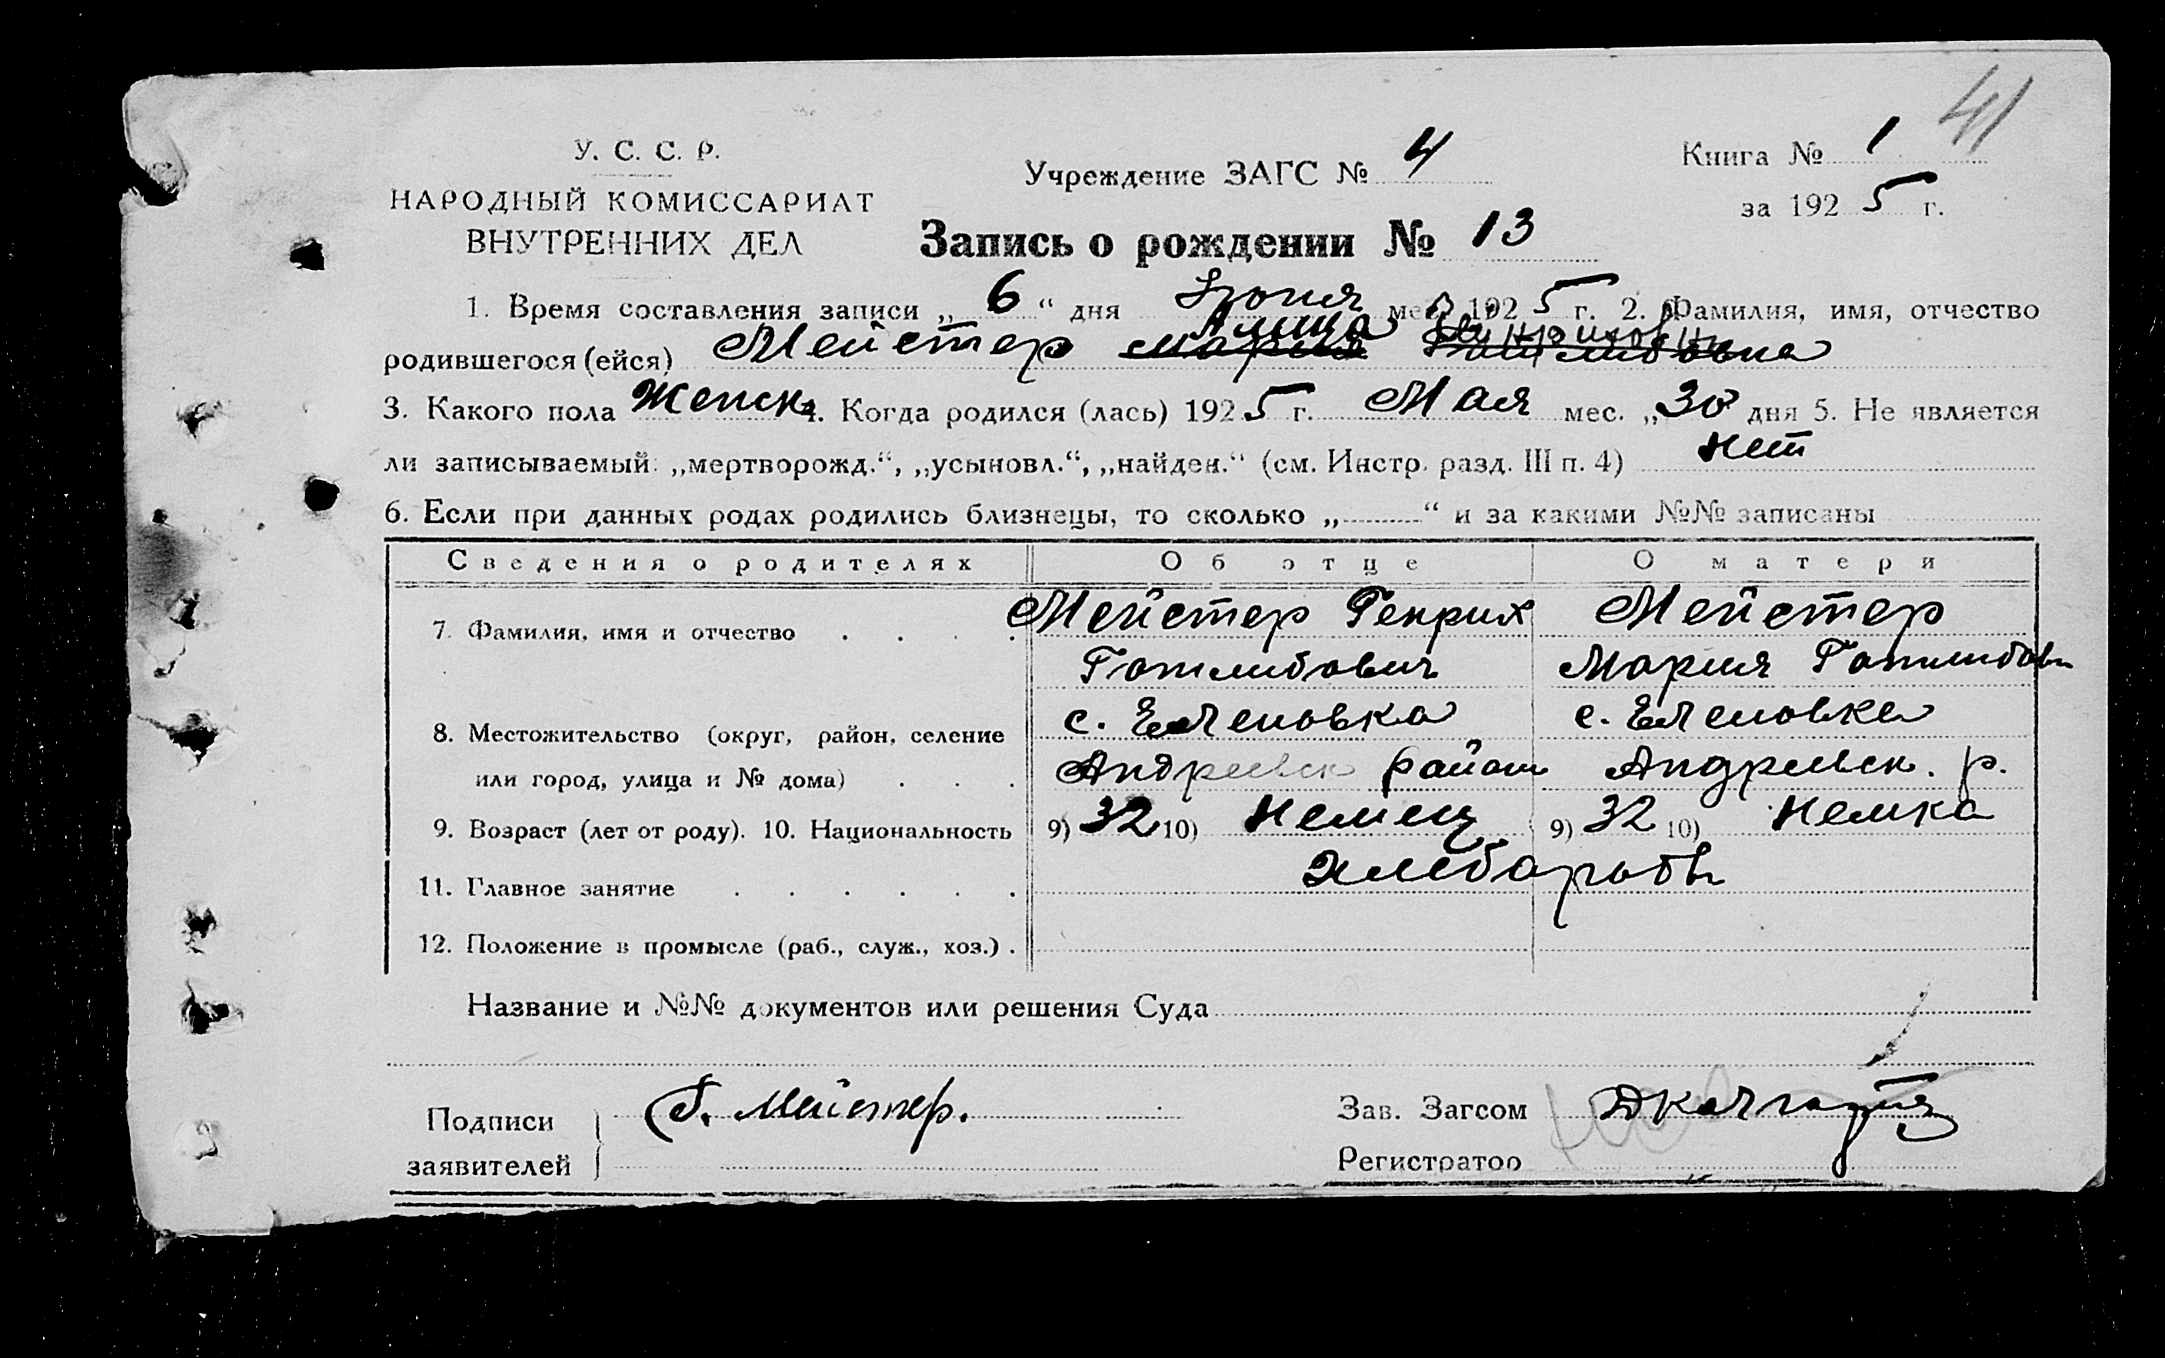 41
У. С. С. Р.
НАРОДНЫЙ КОМИССАРИАТ
ВНУТРЕННИХ ДЕЛ
Учреждение ЗАГС № 4
Книга № 1
за 1925 г.
Запись о рождении № 13
1. Время составления записи „6“ дня Июня мес. 1925 г. 2. Фамилия, имя, отчество
родившегося (ейся) Мейстер
3. Какого пола Женск 4. Когда родился (лась) 1925 г. Мая мес. „30 дня 5. Не является
ли записываемый: „мертворожд.“, „усыновл.“, „найден.“ (см. Инстр. разд. III п. 4) нет
6. Если при данных родах родились близнецы, то сколько „ “ и за какими №№ записаны
Сведения о родителях Об отце О матери
7. Фамилия, имя и отчество Мейстер Генрих Мейстер
Готлибович Мария
8. Местожительство (округ, район, селение с. с.
или город, улица и № дома) Андреевск район Андреевск. р.
9. Возраст (лет от роду). 10. Национальность 9) 32 10) Немец 9) 32 10) Немка
11. Главное занятие
12. Положение в промысле (раб., служ., хоз.)
Название и №№ документов или решения Суда
Подписи
заявителей
Г. Мейстер.
Зав. Загсом
Регистратор